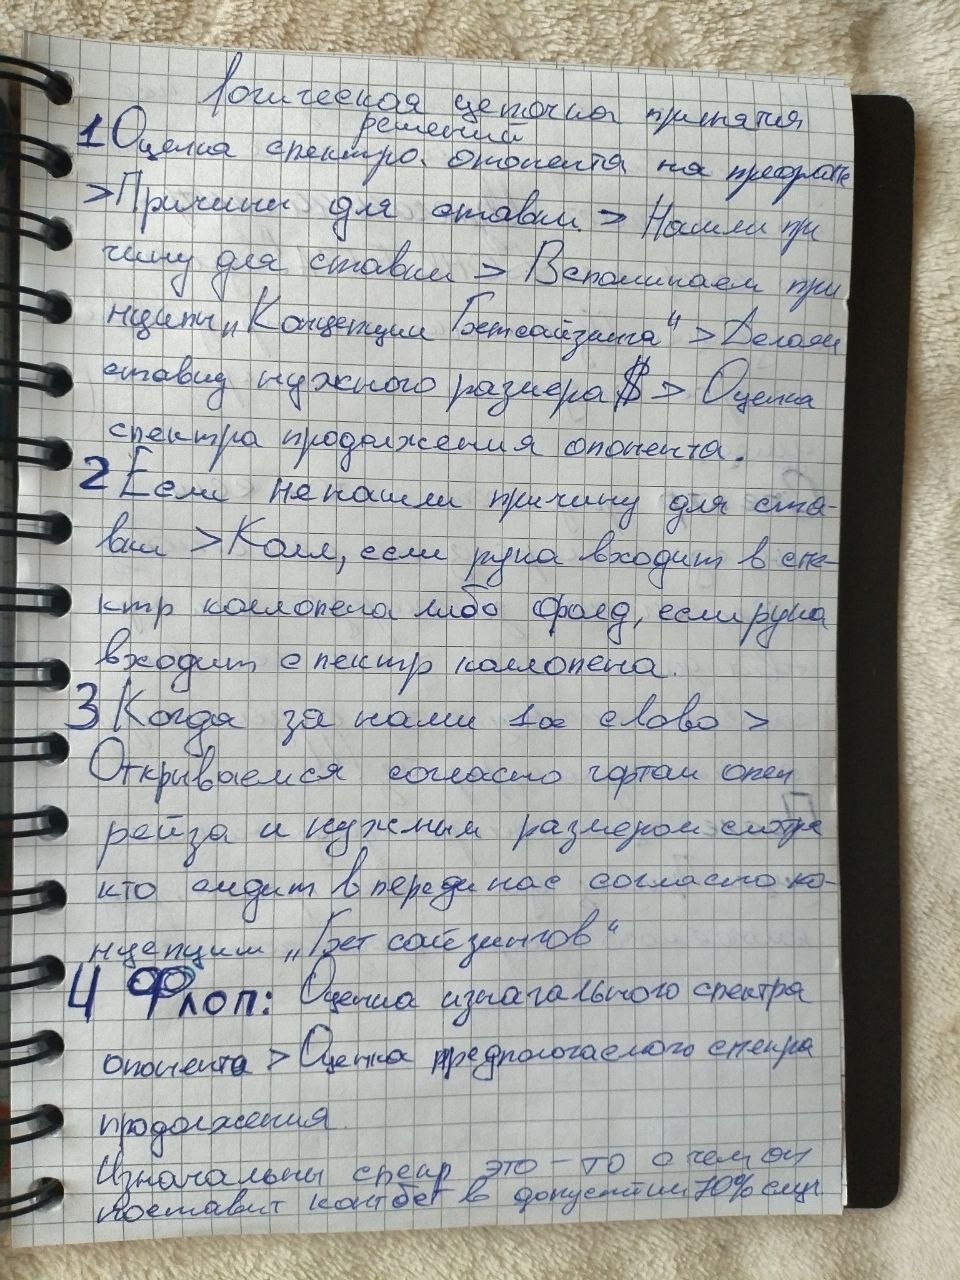 Логическая цепочка принятия
решений
1 Оценка спектра опонента на префлопе
> Причины для ставки > Нашли при
чину для ставки > Вспоминаем при
нципы „Концепции Бетсайзинга“ > Делаем
ставку нужного размера $ > Оценка
спектра продолжения опонента.
2 Если не нашли причину для ста-
вки > Колл, если рука входит в спе-
ктр коллопена либо фолд, если рука
входит спектр коллопена.
3 Когда за нами 1ое слово >
Открываемся согласно чартам опен
рейза и нужным размером смотря
кто сидит впереди нас согласно ко-
нцепции „Бет сайзингов“
4 Флоп: Оценка изначального спектра
опонента > Оценка предпологаемого спекра
продолжения
Изначальны спекр это - то с чем он
поставит контбет в допустим 70% случ